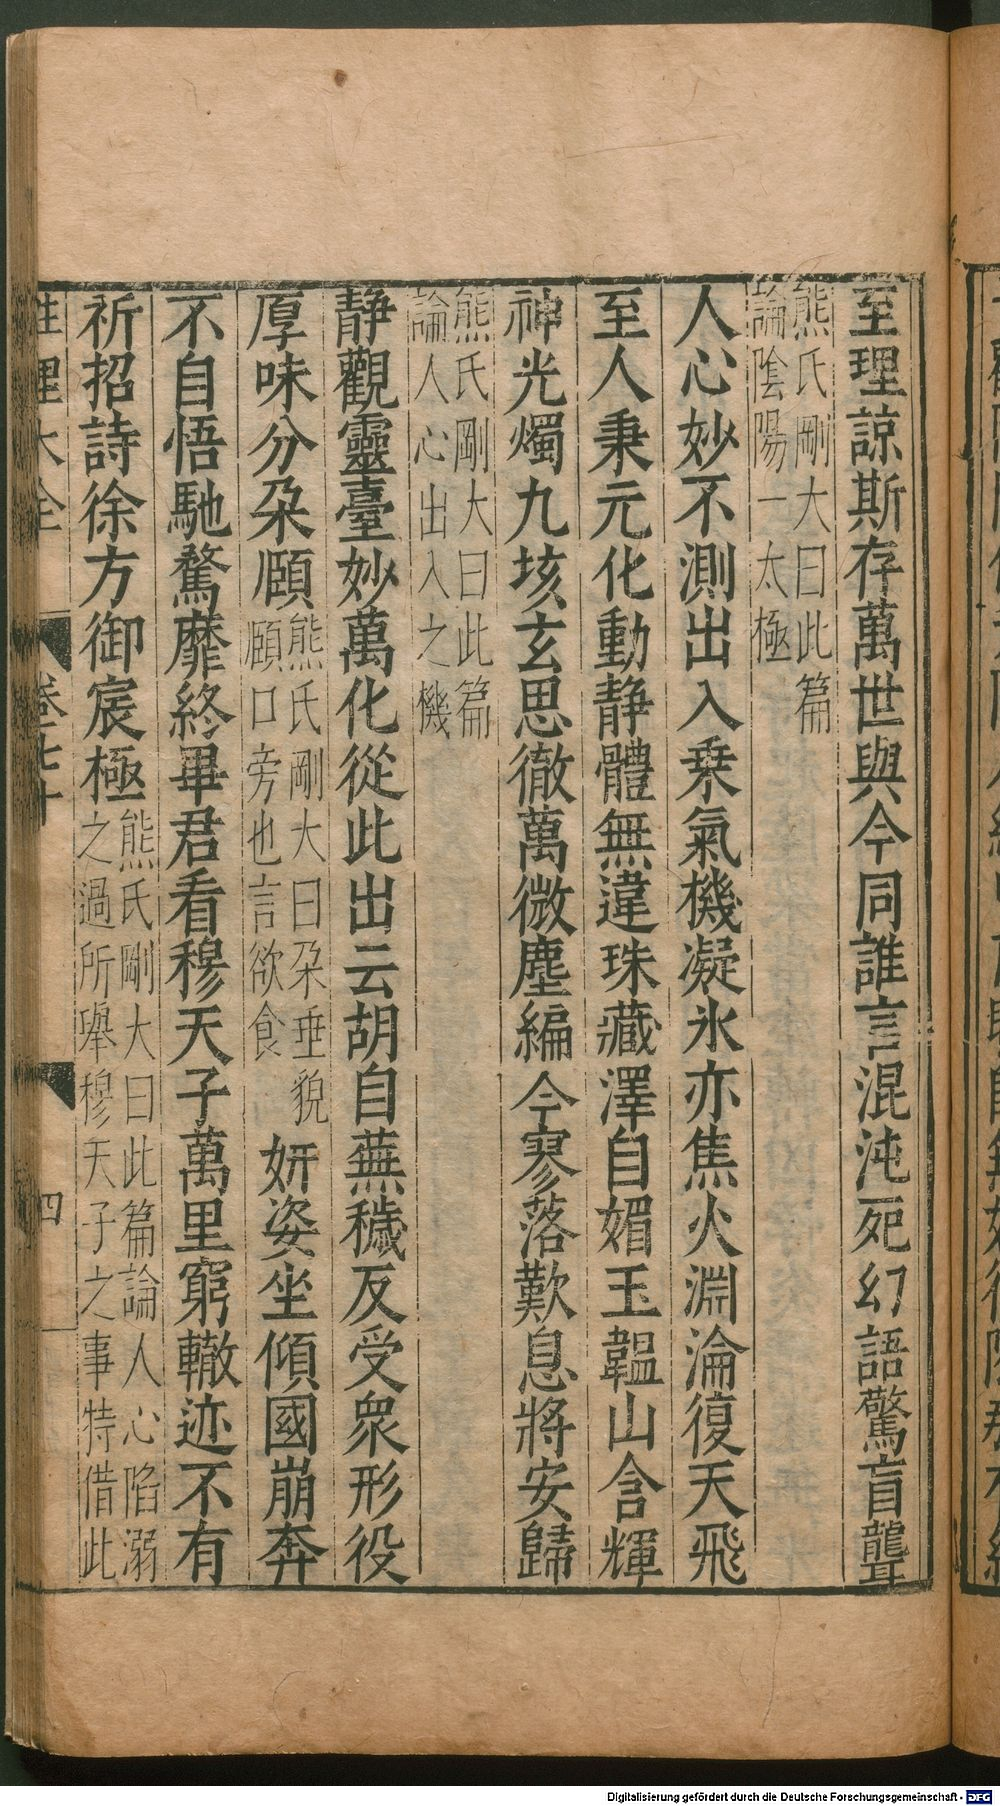 至理諒斯存萬世與今同誰言混沌死幻語驚盲聾
熊氏剛大曰此篇
論陰陽一太極
人心妙不測出入乗氣機凝氷亦焦火淵淪復天飛
至人秉元化動静體無違珠藏澤自媚玉韞山含輝
神光燭九垓玄思徹萬微塵編今寥落歎息將安歸
熊氏剛大曰此篇
論人心出入之機
静觀靈臺妙萬化從此出云胡自蕪穢反受衆形役
厚味分朶頥熊氏剛大曰朶垂貌
頥口旁也言欲食妍姿坐傾國崩奔
不自悟馳騖靡終畢君看穆天子萬里窮轍迹不有
祈招詩徐方御宸極熊氏剛大曰此篇論人心陷溺
之過所舉穆天子之事特借此
性理大全 卷之七十 四
Digitalisierung gefördert durch die Deutsche Forschungsgemeinschaft - DFG